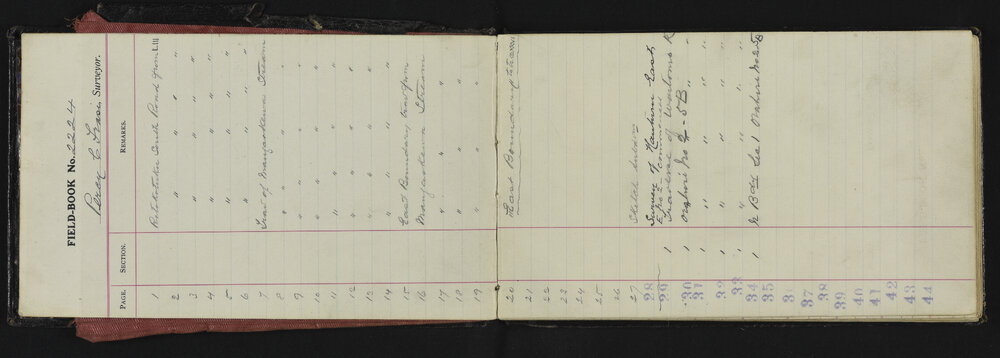 FIELD-BOOK No. 2224
Percy C. Surveyor.
PAGE. SECTION. REMARKS.
1 South Road from L.III
2 " " " " "
3 " " " " "
4 " " " " "
5 " " " " "
6 " " " " "
7 Trav of Mangakawa Stream
8 " " " "
9 " " " "
10 " " " "
11 " " " "
12 " " " "
13 " " " "
14 " " " "
15 East Boundary trav from
16 Mangakawa Stream
17 " " " "
18 " " " "
19 " " " "
20 East Boundary traverse
21
22
23
24
25
26
27 Sketch
28 Survey of East
29 1 Traverse of
30 1 No 2 - 5B "
31 1 " " " "
32 1 " " " "
33 1 " " " "
34 1 N Bdy Sec 1
35
36
37
38
39
40
41
42
43
44